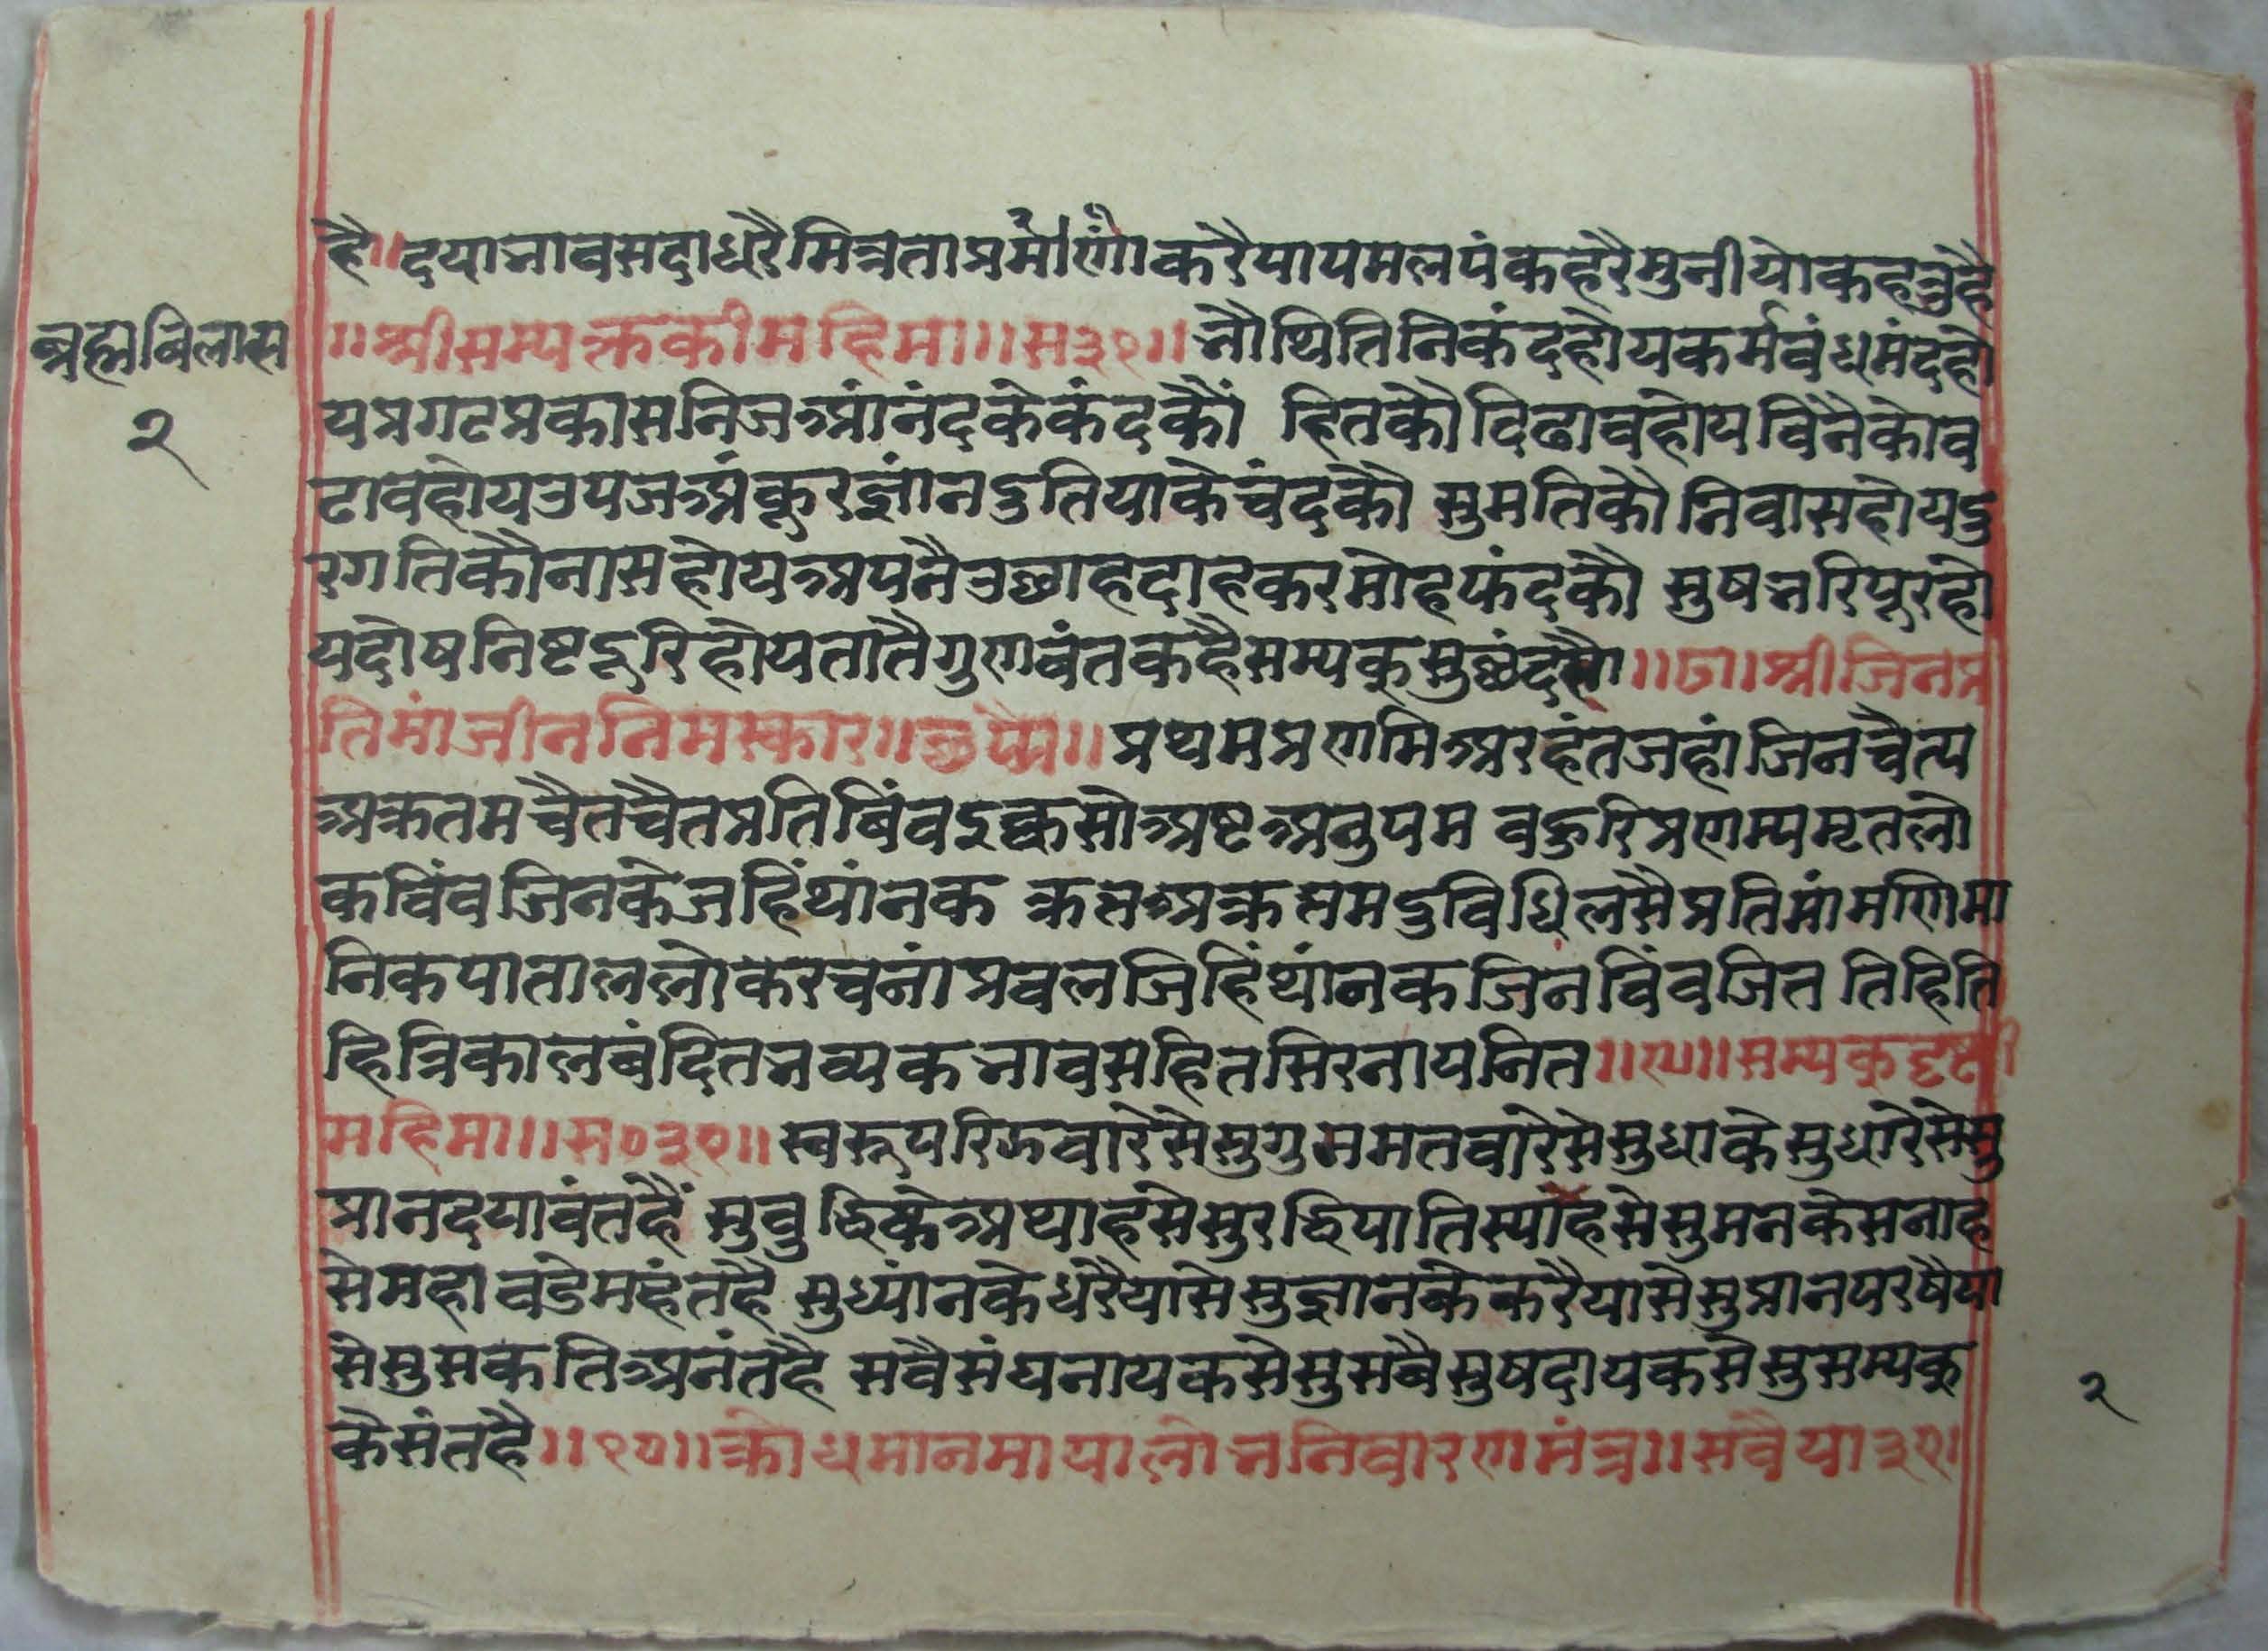 है॥दयाभावसदाधरैभिन्नताप्रमांणकरैपापमलपंकहरैमुनीयोकहतुहै
ब्रह्मविलास
२
॥श्रीसम्यक्तकीमहिमा॥स३१॥भौथितिनिकंदहोयकर्मबंधमंदहो
यप्रगटप्रकासनिजआंनंदकेकंदकौं हितकौदिढावहोयविनैकोव
ढावहोयउपजअंकूरज्ञांनदुतियाकेचंदकौ सुमतिकौनिवासहोयदु
रगतिकौनासहोयअपनैउछाहदाहकरमोहफंदकौ सुषभरिपूरहो
यदोषनिष्टदूरिहोयतातैगुणवंतकहैसम्यकसुछंदसौ॥८॥श्रीजिनप्र
तिमांजीननिमस्कार॥छप्पै॥प्रथमप्रणमिअरहंतजहांजिनचैत्य
अक्रतमचैतचैतप्रतिबिंवइक्कसोअष्टअनुपम वहुरिप्रणम्यमृतलो
कविंवजिनकेजहिंथांनक क्रतअक्रतमदुविधिलसैप्रतिमांमणिमा
निकपाताललोकरचनांप्रवलजिहिंथांनकजिनविंवजित तिहिति
हित्रिकालबंदितभव्यकभावसहितसिरनायनित॥९॥सम्यकदृष्टी
महिमा॥स०३१॥स्वरूपरिझवारेसेसुगुनमतवारेसेसुधाकेसुधारेसेसु
प्रानदयावंतहैं सुवुद्धिकेअथाहसेसुरद्धिपातिस्याहसेसुमनकेसनाह
सेमहावडेमहंतहै सुध्यांनकेधरैयासेसुज्ञानकेकरैयासेसुप्रानपरषैया
सेसुसकतिअनंतहै सवैसंघनायकसेसुसबैसुषदायकसेसुसम्यक
केसंतहै॥१०॥क्रोधमानमायालोभनिवारणमंत्र॥सवैया३१॥
२